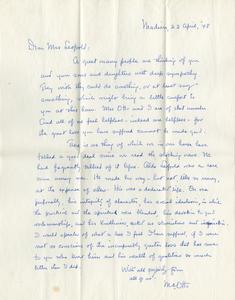 Madison, 22 April, '48
Dear Mrs Leopold:
A great many people are thinking of you
and your sons and daughters with deep sympathy.
They wish they could do something, or at least say
something, which might bring a little comfort to
you at this hour. Mrs Otto and I are of that number.
And all of us feel helpless - indeed are helpless - for
the great loss you have suffered cannot be made good.
There is one thing of which we in our house have
talked a good deal since we read the shocking news. We
had frequently talked of it before. Aldo
He made his way - but not like so many,
at the expense of others. His was a dedicated life. On
his integrity of character, his social idealism, in which
the practical and the spiritual were blended, his devotion to
and his kindliness
I would speak of what a loss I feel
not so conscious of the incomparably greater loss that has come
to you who loved him and his wealth of qualities so much
better than I did.
With all sympathy from
all of us,
M. C. Otto